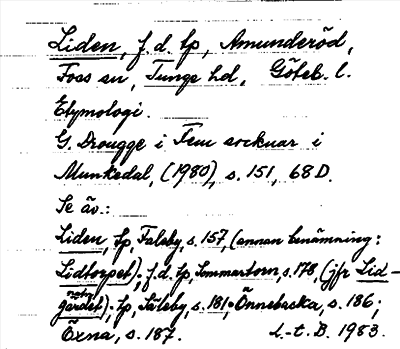 Liden, f.d. tp, Amunderöd,
Foss sn, Tunge hd, Göteb. l.
Etymologi.
G. Drougge i Fem socknar i
Munkedal, (1980), s. 151, 68 D.
Se äv.:
Liden, tp, Faleby, s. 157, (annan benämning:
Lidtorpet); f.d. tp, Sommartorn, s. 178, (jfr Lid-
gärdet); tp, Säleby, s. 181; Önnebacka, s. 186;
Öxna, s. 187. L-t. B. 1983.